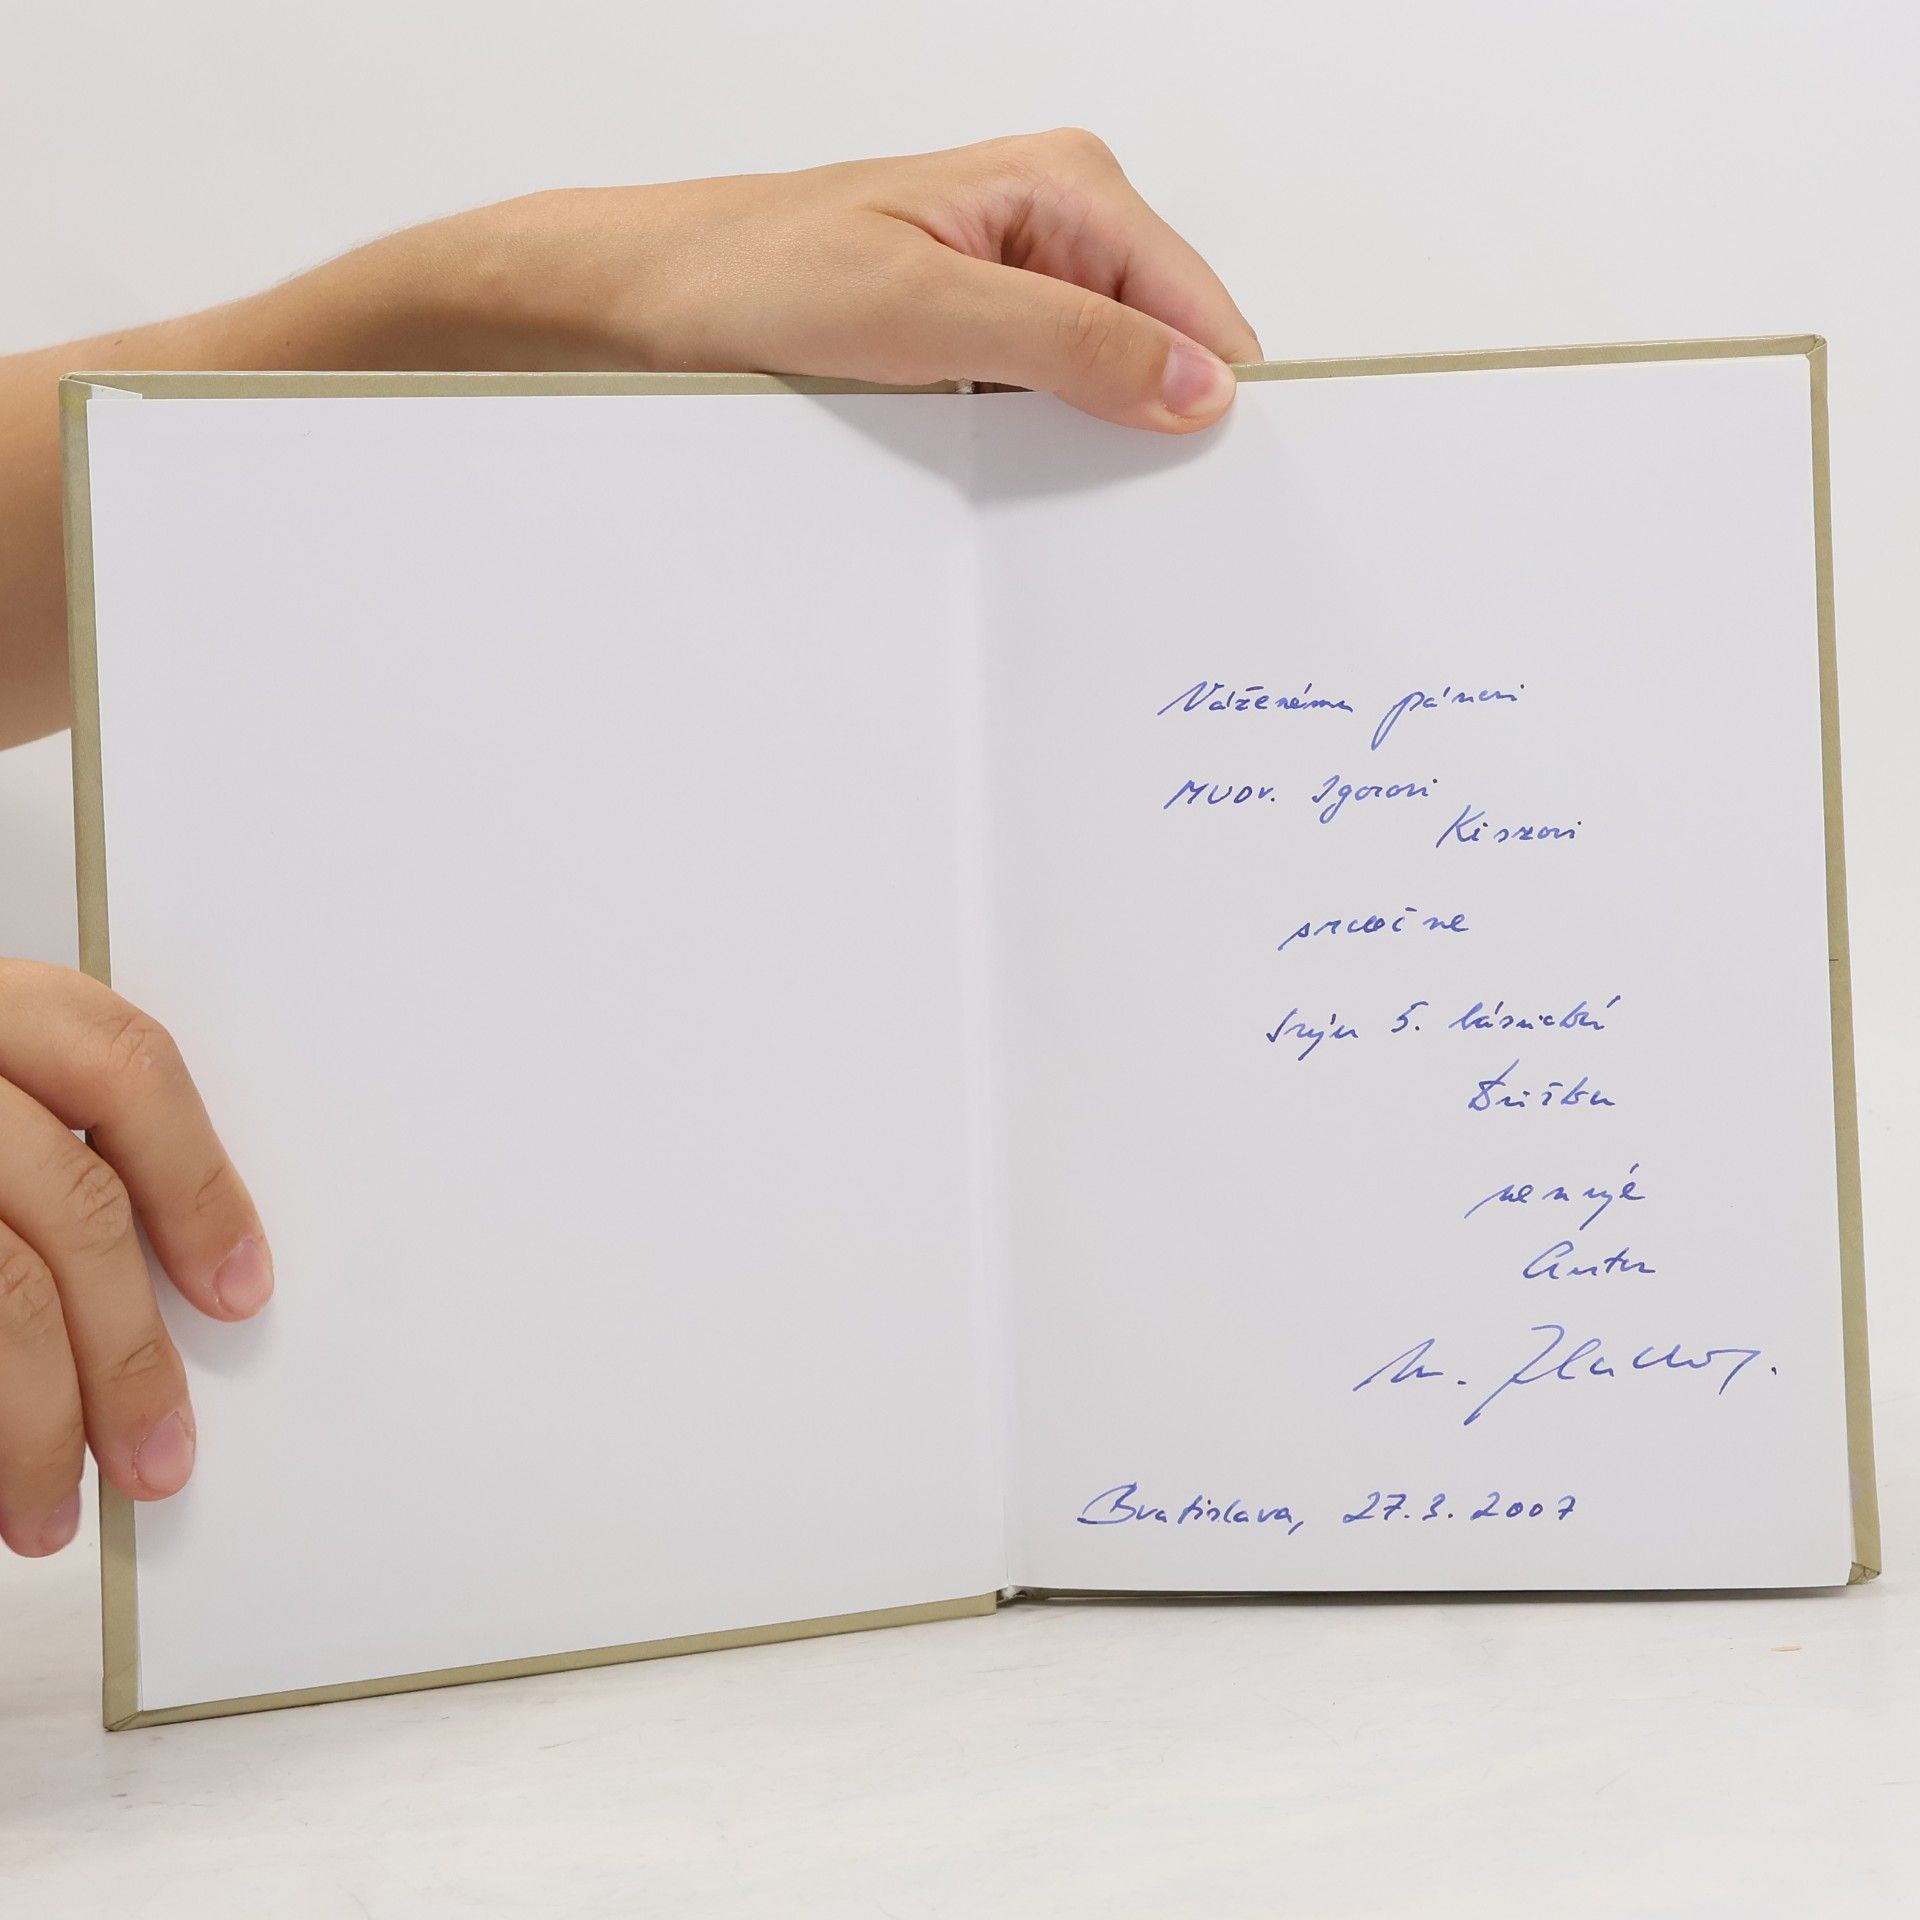 Váženému pánovi
MUDr. Igorovi
Kiszovi
srdečne
svoju 5. básnickú
knižku
venuje
autor
Bratislava, 27.3.2007